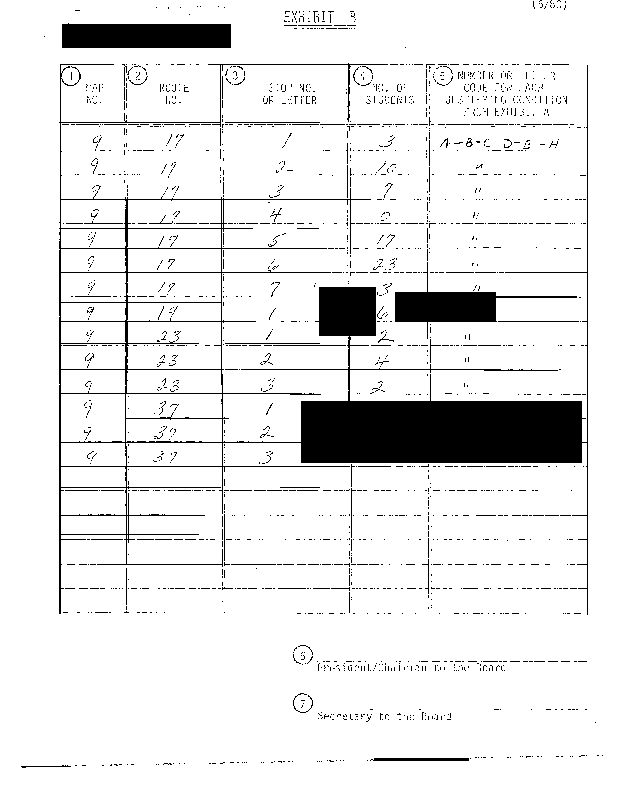 (5/80)
EXHIBIT B
1 MAP NO.
2 ROUTE NO.
3 STOP NO. OR LETTER
4 NO. OF STUDENTS
5 NUMBER OR LETTER CODE FOR EACH JUSTIFYING CONDITION FROM EXHIBIT A
9 17 1 3 A-B-C D-E-H
9 17 2 10 "
9 17 3 7 "
9 17 4 0 "
9 17 5 17 "
9 17 6 23 "
9 17 7 3 "
9 19 1 6
9 23 1 2 "
9 23 2 4 "
9 23 3 2 "
9 37 1
9 37 2
9 37 3
6
President/Chairman to the Board
7
Secretary to the Board